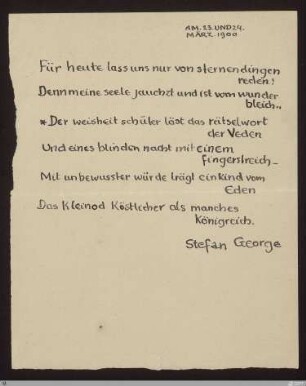 AM. 23. UND 24.
MÄRZ. 1900
Für heute lass uns nur von sternendingen
reden!
Denn meine seele jauchzt und ist vom wunder
bleich..
*Der weisheit schüler löst das rätselwort
der Veden
Und eines blinden nacht mit einem
fingerstreich –
Mit unbewusster würde trägt ein kind vom
Eden
Das Kleinod Köstlicher als manches
Königreich.
Stefan George